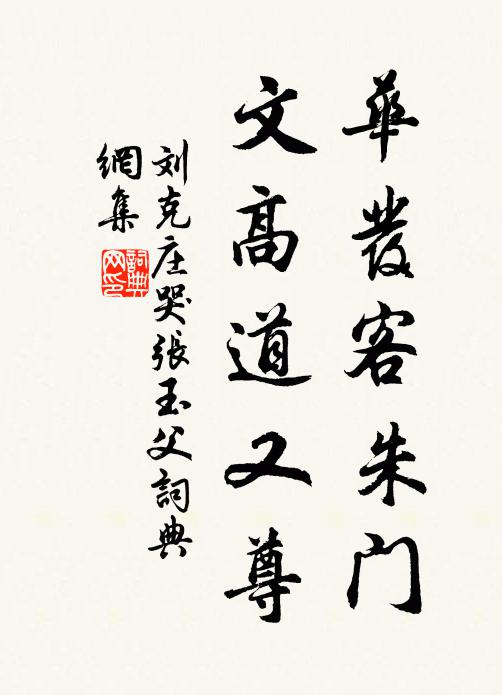 華發客朱門
文高道又尊
刘克庄哭張玉父詞典
網集
詞典网印